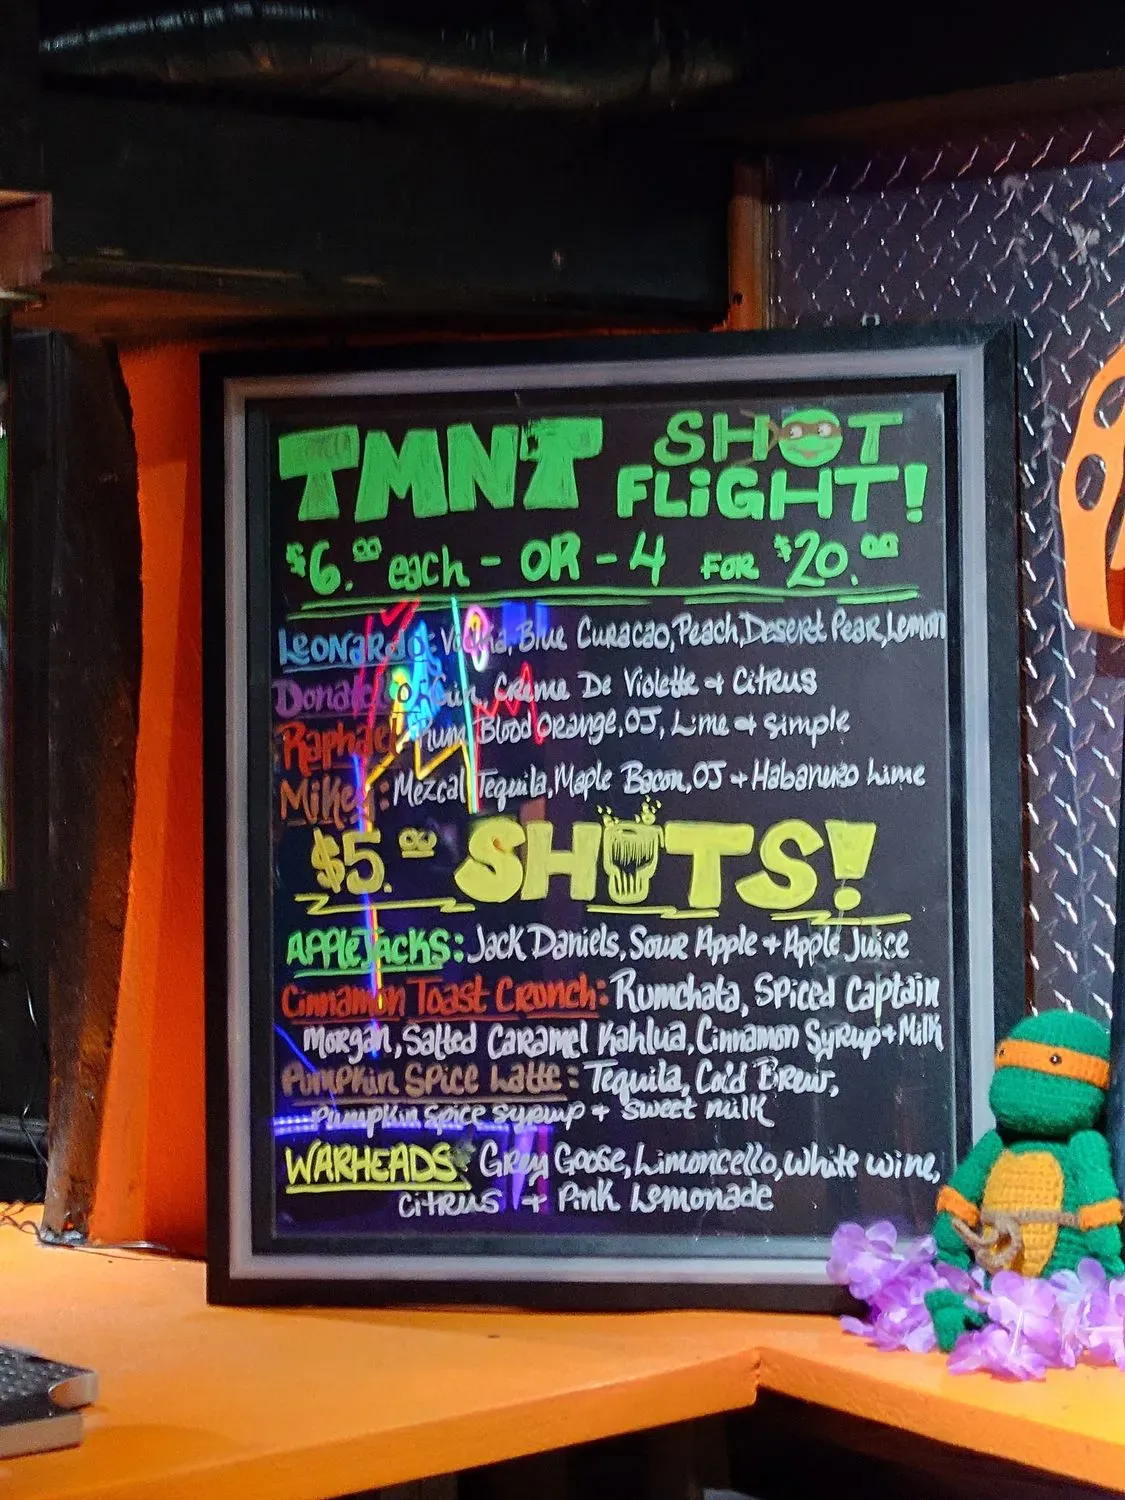 TMNT SHOT
FLIGHT!
$6.00 each - OR - 4 FOR $20.00
Leonardo: Vodka, Blue Curacao, Peach, Desert Pear, Lemon
Donatello: Gin, Creme De Violette + Citrus
Raphael: Rum, Blood Orange, OJ, Lime + simple
Mikey: Mezcal Tequila, Maple Bacon, OJ + Habanero Lime
$5.00 SHOTS!
AppleJacks: Jack Daniels, Sour Apple + Apple Juice
Cinnamon Toast Crunch: Rumchata, Spiced Captain
Morgan, Salted Caramel Kahlua, Cinnamon Syrup + Milk
Pumpkin Spice Latte: Tequila, Cold Brew,
Pumpkin spice syrup + sweet milk
WARHEADS: Grey Goose, Limoncello, White wine,
Citrus + Pink Lemonade